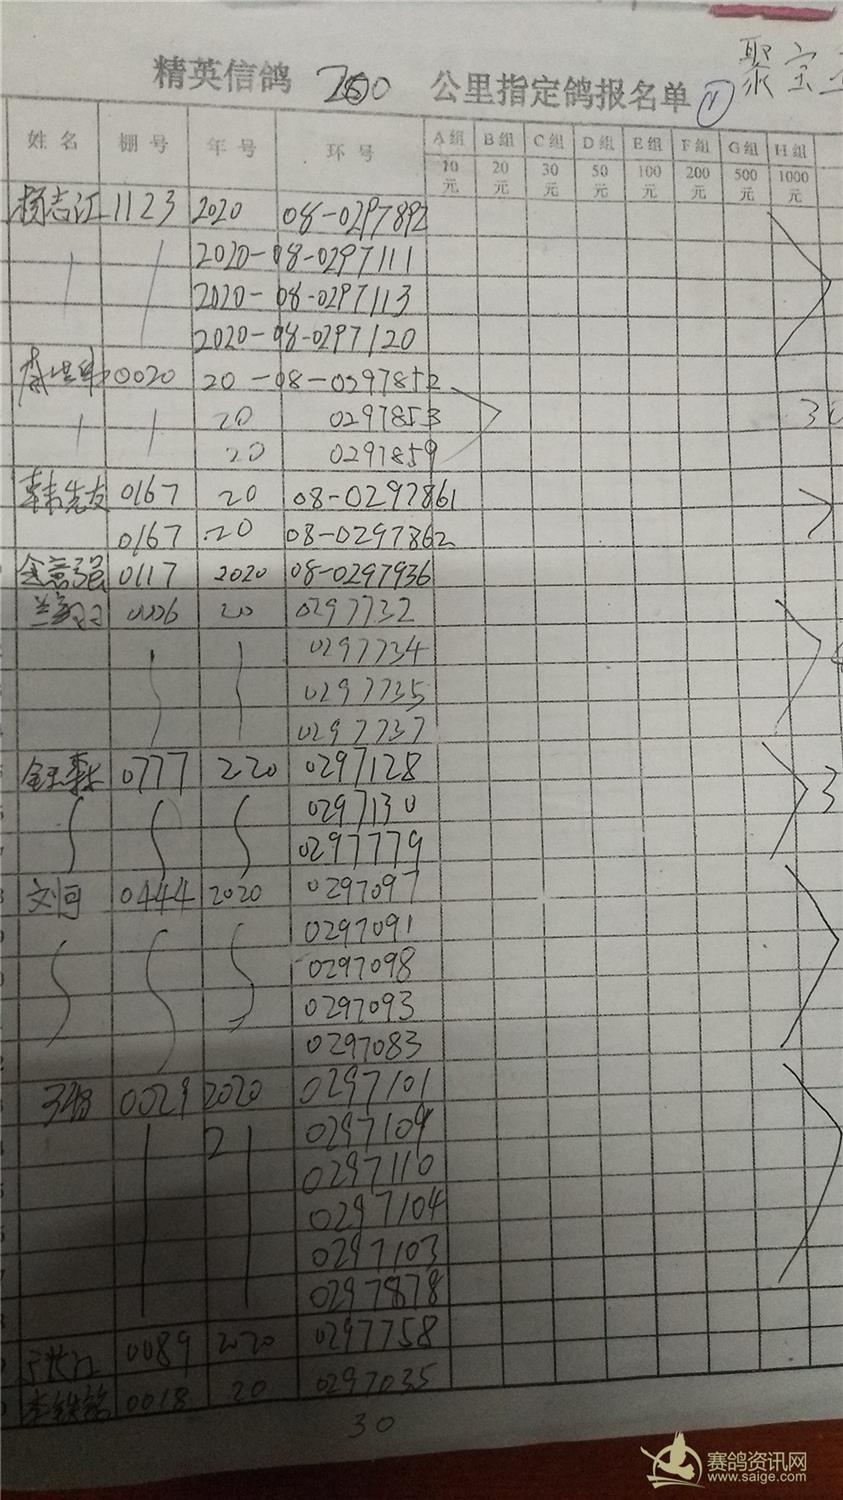 聚宝
精英信鸽 700 公里指定鸽报名单 ①
姓名 棚号 年号 环号 A组 B组 C组 D组 E组 F组 G组 H组
10元 20元 30元 50元 100元 200元 500元 1000元
杨志江 1123 2020 08-0297892
2020-08-0297111
2020-08-0297113
2020-08-0297120
0020 20-08-0297852
20 0297853
20 0297859
韩先友 0167 20 08-0297861
0167 20 08-0297862
金意强 0117 2020 08-0297936
0006 20 0297732
0297734
0297735
0297737
0777 220 0297128
0297130
0297779 3
刘可 0444 2020 0297097
0297091
0297098
0297093
0297083
0029 2020 0297101
2 0297109
0297110
0297104
0297103
0297878
于长江 0089 2020 0297758
李铁铭 0018 20 0297035
30
赛鸽资讯网
www.saige.com